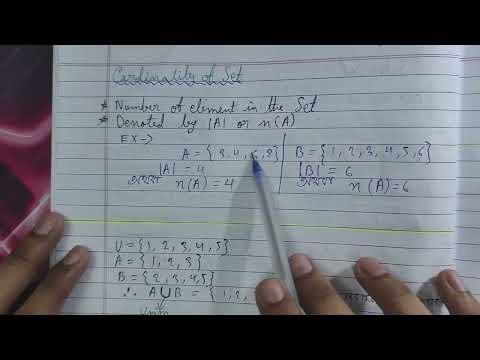 Cardinality of Set
* Number of element in the Set
* Denoted by |A| or n(A)
EX→
A = {2,4,6,8}
|A| = 4
অথবা n(A) = 4
B = {1, 2, 3, 4, 5, 6}
|B| = 6
অথবা n(A) = 6
U = {1, 2, 3, 4, 5}
A = {1, 2, 3}
B = {2, 3, 4, 5}
∴ A∪B = {1, 2,